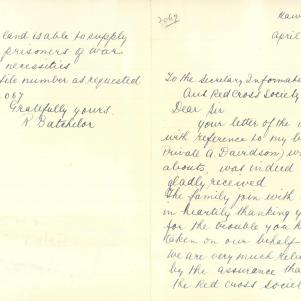 2067
April
To the Secretary Informat
Aus Red Cross Society
Dear Sir
your letter of the
with reference to my b
Private A. Davidson) w
abouts, was indeed
gladly received
The family join with
in heartily thanking y
for the trouble you h
taken on our behalf
We are very much relie
by the assurance tha
the Red Cross Socie
land is able to supply
prisoners of war
necessities
file number as requested
067
Gratefully yours
R. Batchelor